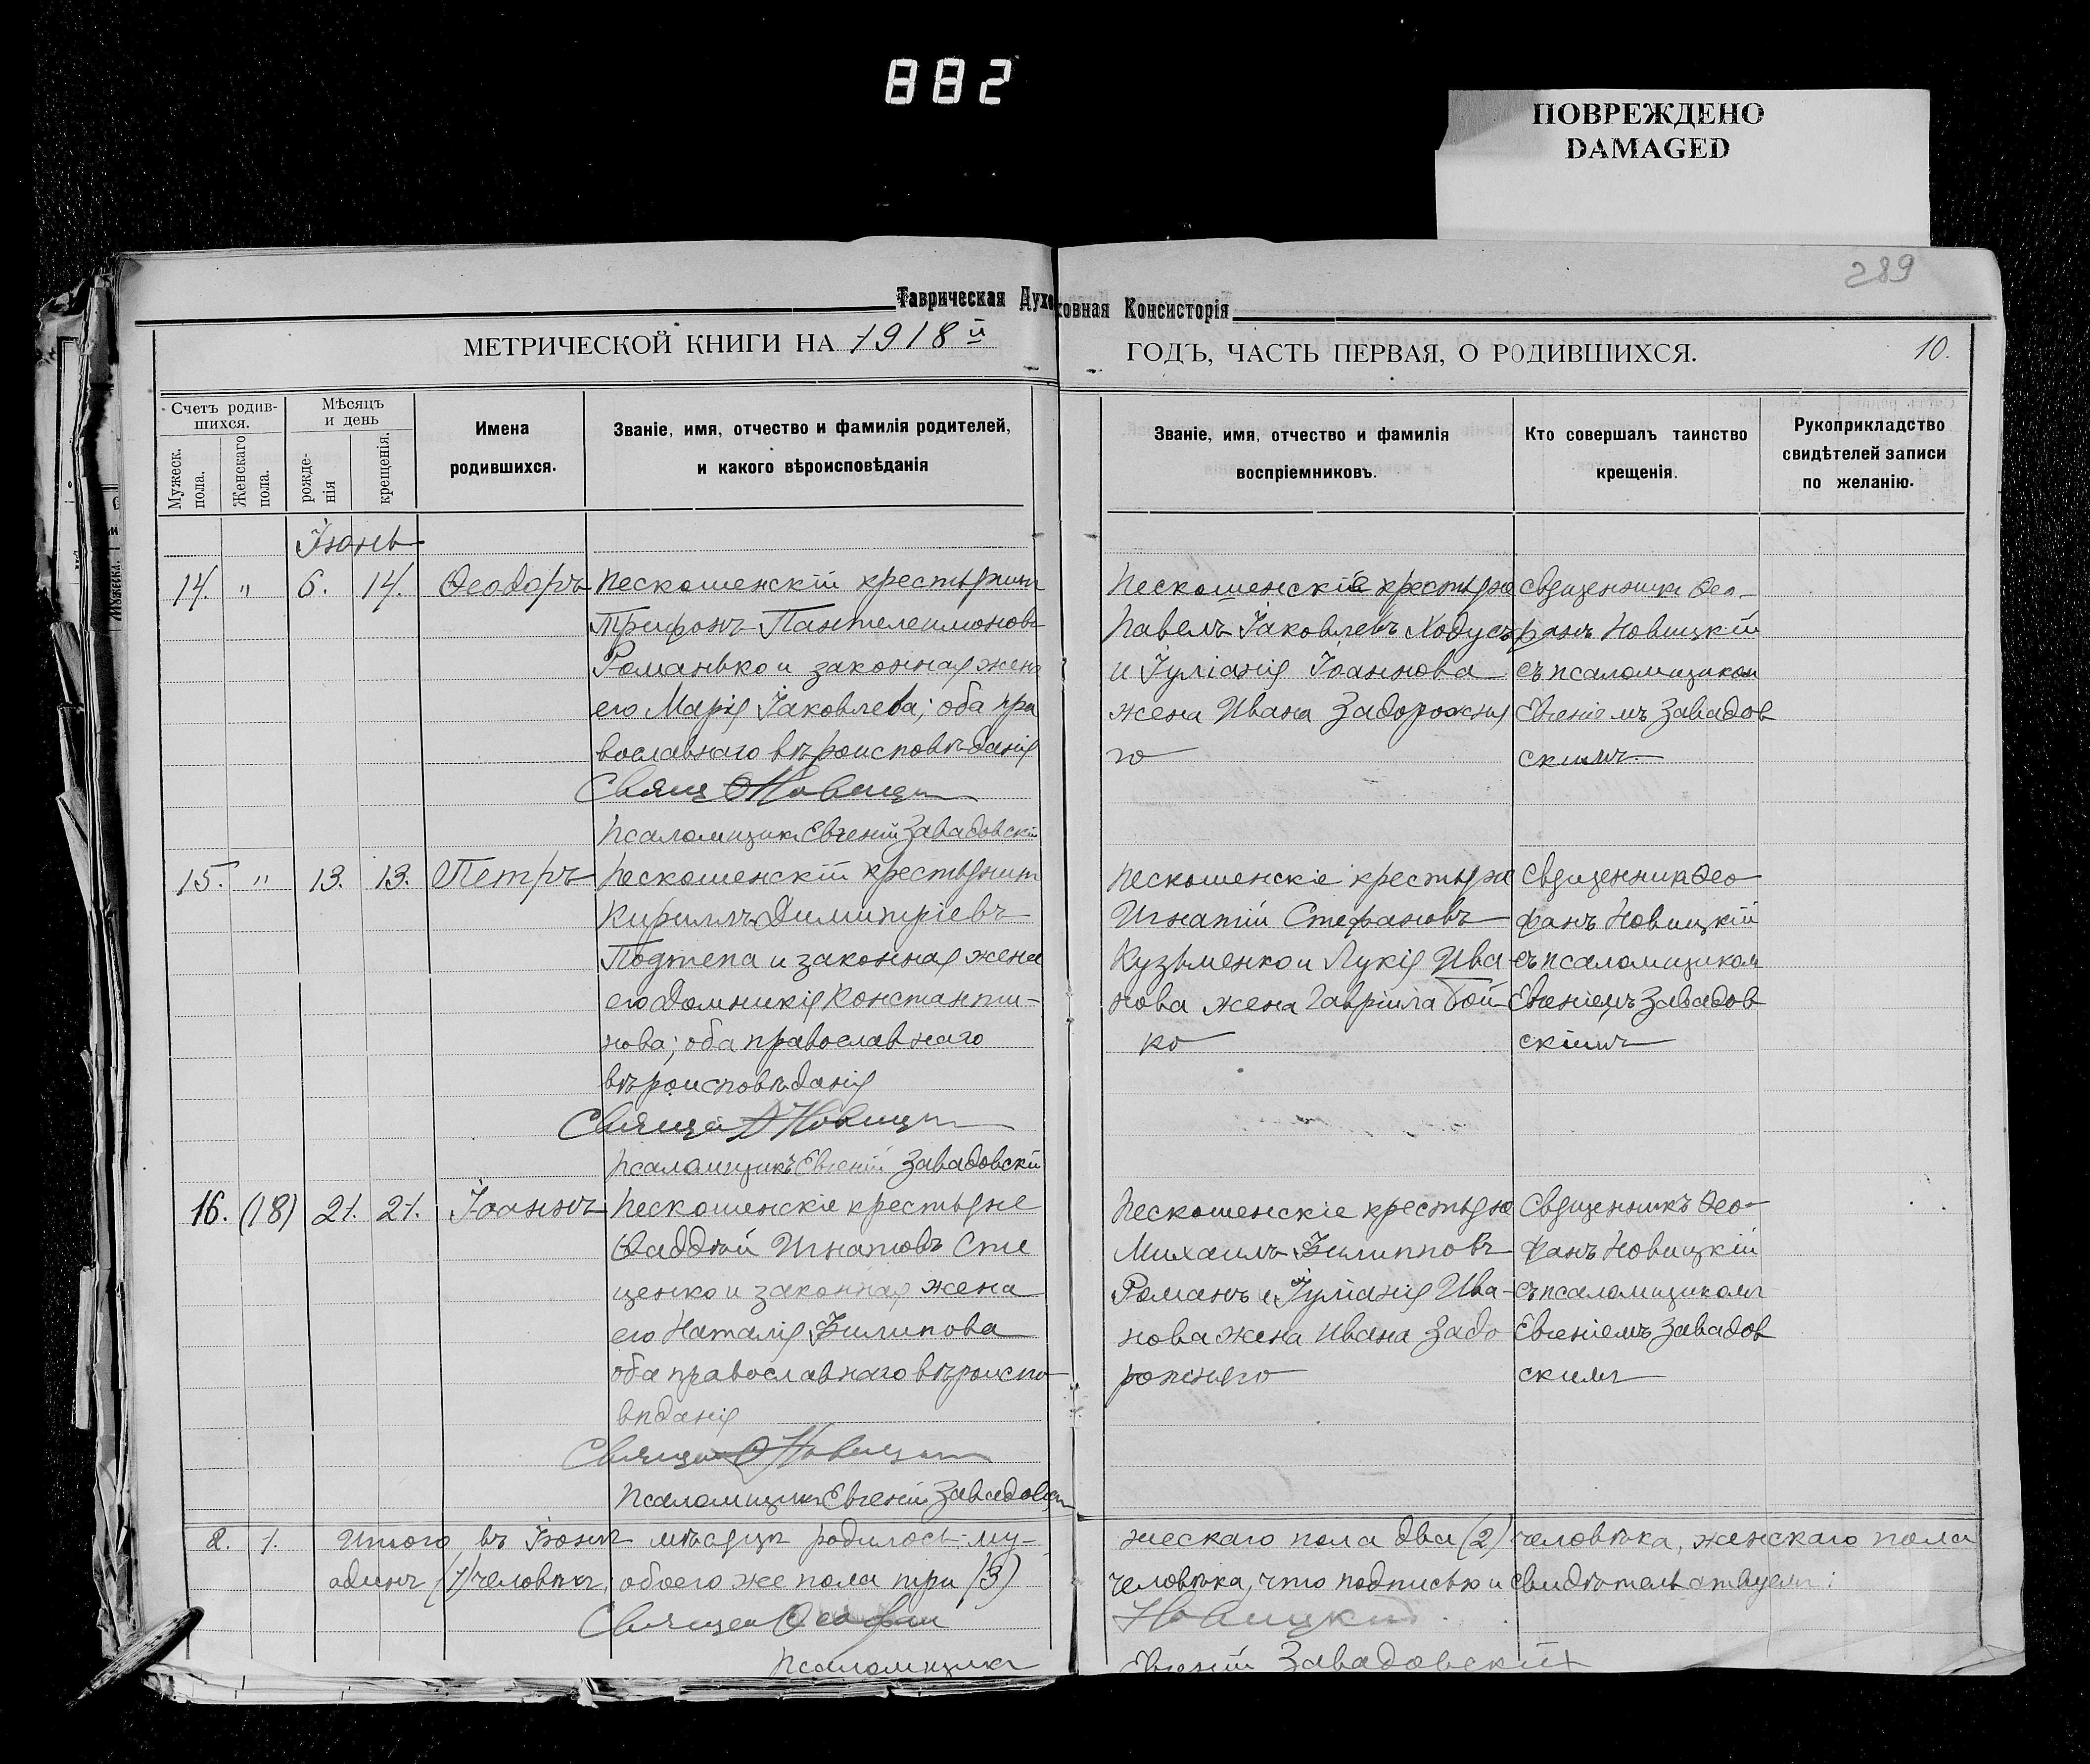 882
ПОВРЕЖДЕНО
DAMAGED
289
Таврическая Духовная Консисторія
МЕТРИЧЕСКОЙ КНИГИ НА 1918й
ГОДЪ, ЧАСТЬ ПЕРВАЯ, О РОДИВШИХСЯ.
10.
Счетъ родив-
шихся.
Мужеск. пола.
Женскаго пола.
Мѣсяцъ
и день
рожде-
нія
крещенія.
Имена
родившихся.
Званіе, имя, отчество и фамилія родителей,
и какого вѣроисповѣданія
Званіе, имя, отчество и фамилія
воспріемниковъ.
Кто совершалъ таинство
крещенія.
Рукоприкладство
свидѣтелей записи
по желанію.
Іюнь
14. " 6. 14. Ѳеодоръ
Пескошенскій крестьянин
Трифонъ Пантелеимоновъ
Романько и законная жена
его Марія Іаковлева; оба пра
вославнаго вѣроисповѣданія
Свящ Ѳ Новицк
Псаломщикъ Евгеній Завадовскій
Пескошенскіе крестьяне
Павелъ Іаковлевъ Ходусъ
и Іуліанія Іоаннова
жена Ивана Задорожня
го
Священникъ Ѳео-
фанъ Новицкій
съ псаломщиком
Евгеніемъ Завадов
скимъ
15. " 13. 13. Петръ
Пескошенскій крестьянин
Кириллъ Димитріевъ
Подтепа и законная жена
его Домникія Константи-
нова; оба православнаго
вѣроисповѣданія
Священ Ѳ Новицк
Псаломщикъ Евгеній Завадовскій
Пескошенскіе крестьяне
Игнатій Стефановъ
Кузьменко и Лукія Ива-
нова жена Гавріила Бой-
ко
Священник Ѳео
фанъ Новицкій
съ псаломщиком
Евгеніемъ Завадов
скіимъ
16. (18) 21. 21. Іоаннъ
Пескошенскіе крестьяне
Ѳаддѣй Игнатовъ Сте
ценко и законная жена
его Наталія Филипова
оба православнаго вѣроиспо
вѣданія
Священ Ѳ Новицк
Псаломщикъ Евгеній Завадовск
Пескошенскіе крестьяне
Михаилъ Филипповъ
Романъ и Іуліанія Ива-
нова жена Ивана Задо
рожняго
Священникъ Ѳео-
фанъ Новицкій
съ псаломщикомъ
Евгеніемъ Завадов
скимъ
2. 1. Итого въ Іюнѣ мѣсяцѣ родилось: му-
жескаго пола два (2) человѣка, женскаго пола
одинъ (1) человѣкъ, обоего же пола три (3)
человѣка, что подписью и свидѣтельствуем:
Священ Ѳеофан
Новицкій
Псаломщикъ
Евгеній Завадовскій